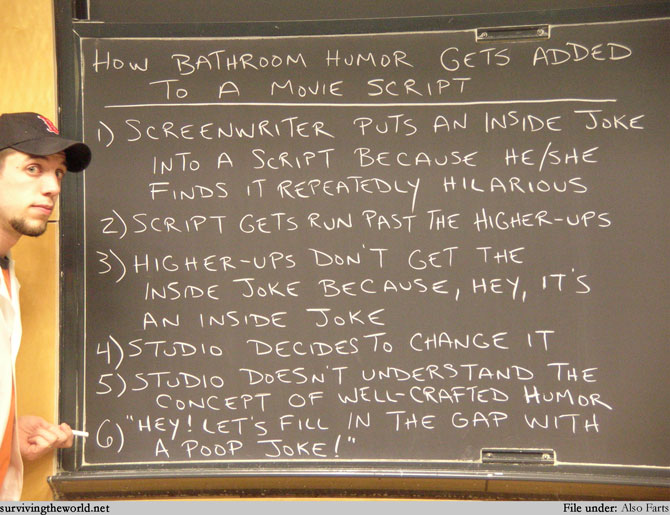 HOW BATHROOM HUMOR GETS ADDED
TO A MOVIE SCRIPT
1) SCREENWRITER PUTS AN INSIDE JOKE
INTO A SCRIPT BECAUSE HE/SHE
FINDS IT REPEATEDLY HILARIOUS
2) SCRIPT GETS RUN PAST THE HIGHER-UPS
3) HIGHER-UPS DON'T GET THE
INSIDE JOKE BECAUSE, HEY, IT'S
AN INSIDE JOKE
4) STUDIO DECIDES TO CHANGE IT
5) STUDIO DOESN'T UNDERSTAND THE
CONCEPT OF WELL-CRAFTED HUMOR
6) "HEY! LET'S FILL IN THE GAP WITH
A POOP JOKE!"
survivingtheworld.net File under: Also Farts